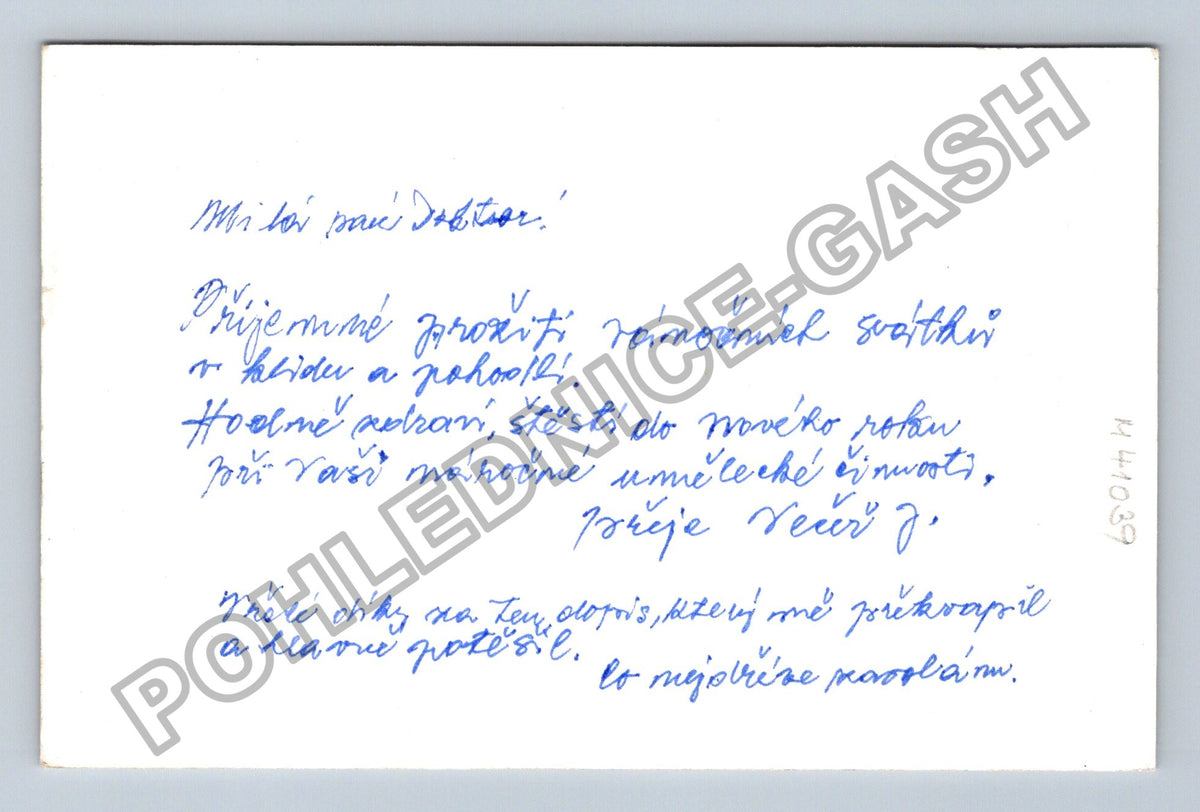 Milý paní Doktor!
Příjemné prožití vánočních svátků
v klidu a pohodlí.
Hodně zdraví, štěstí do nového roku
při Vaší náročné umělecké činnosti.
přeje Večeř J.
Vřelé díky za ten dopis, který mě překvapil
a hlavně potěšil.
Co nejdříve zavolám.
M 41039
POHLEDNICE-GASH